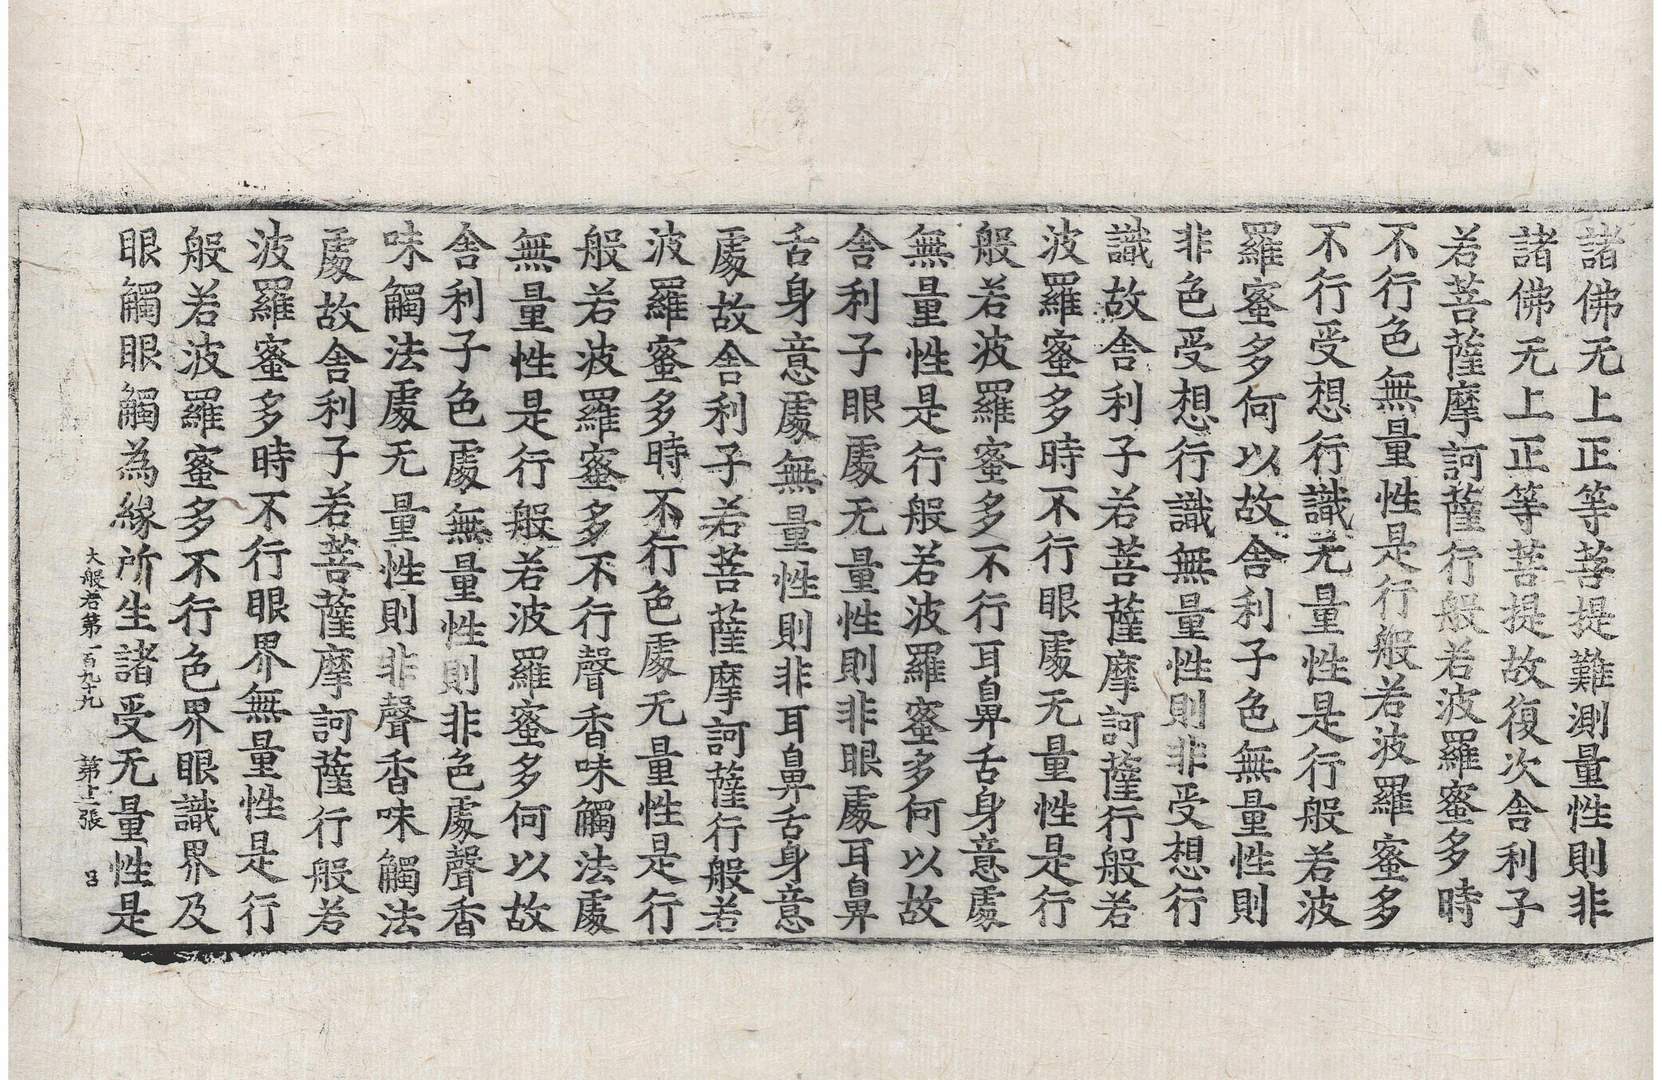 諸佛无上正等菩提難測量性則非
諸佛无上正等菩提故復次舍利子
若菩薩摩訶薩行般若波羅蜜多時
不行色無量性是行般若波羅蜜多
不行受想行識无量性是行般若波
羅蜜多何以故舍利子色無量性則
非色受想行識無量性則非受想行
識故舍利子若菩薩摩訶薩行般若
波羅蜜多時不行眼處无量性是行
般若波羅蜜多不行耳鼻舌身意處
無量性是行般若波羅蜜多何以故
舍利子眼處无量性則非眼處耳鼻
舌身意處無量性則非耳鼻舌身意
處故舍利子若菩薩摩訶薩行般若
波羅蜜多時不行色處无量性是行
般若波羅蜜多不行聲香味觸法處
無量性是行般若波羅蜜多何以故
舍利子色處無量性則非色處聲香
味觸法處无量性則非聲香味觸法
處故舍利子若菩薩摩訶薩行般若
波羅蜜多時不行眼界無量性是行
般若波羅蜜多不行色界眼識界及
眼觸眼觸為緣所生諸受无量性是
大般若第一百九十九 第十二張 呂